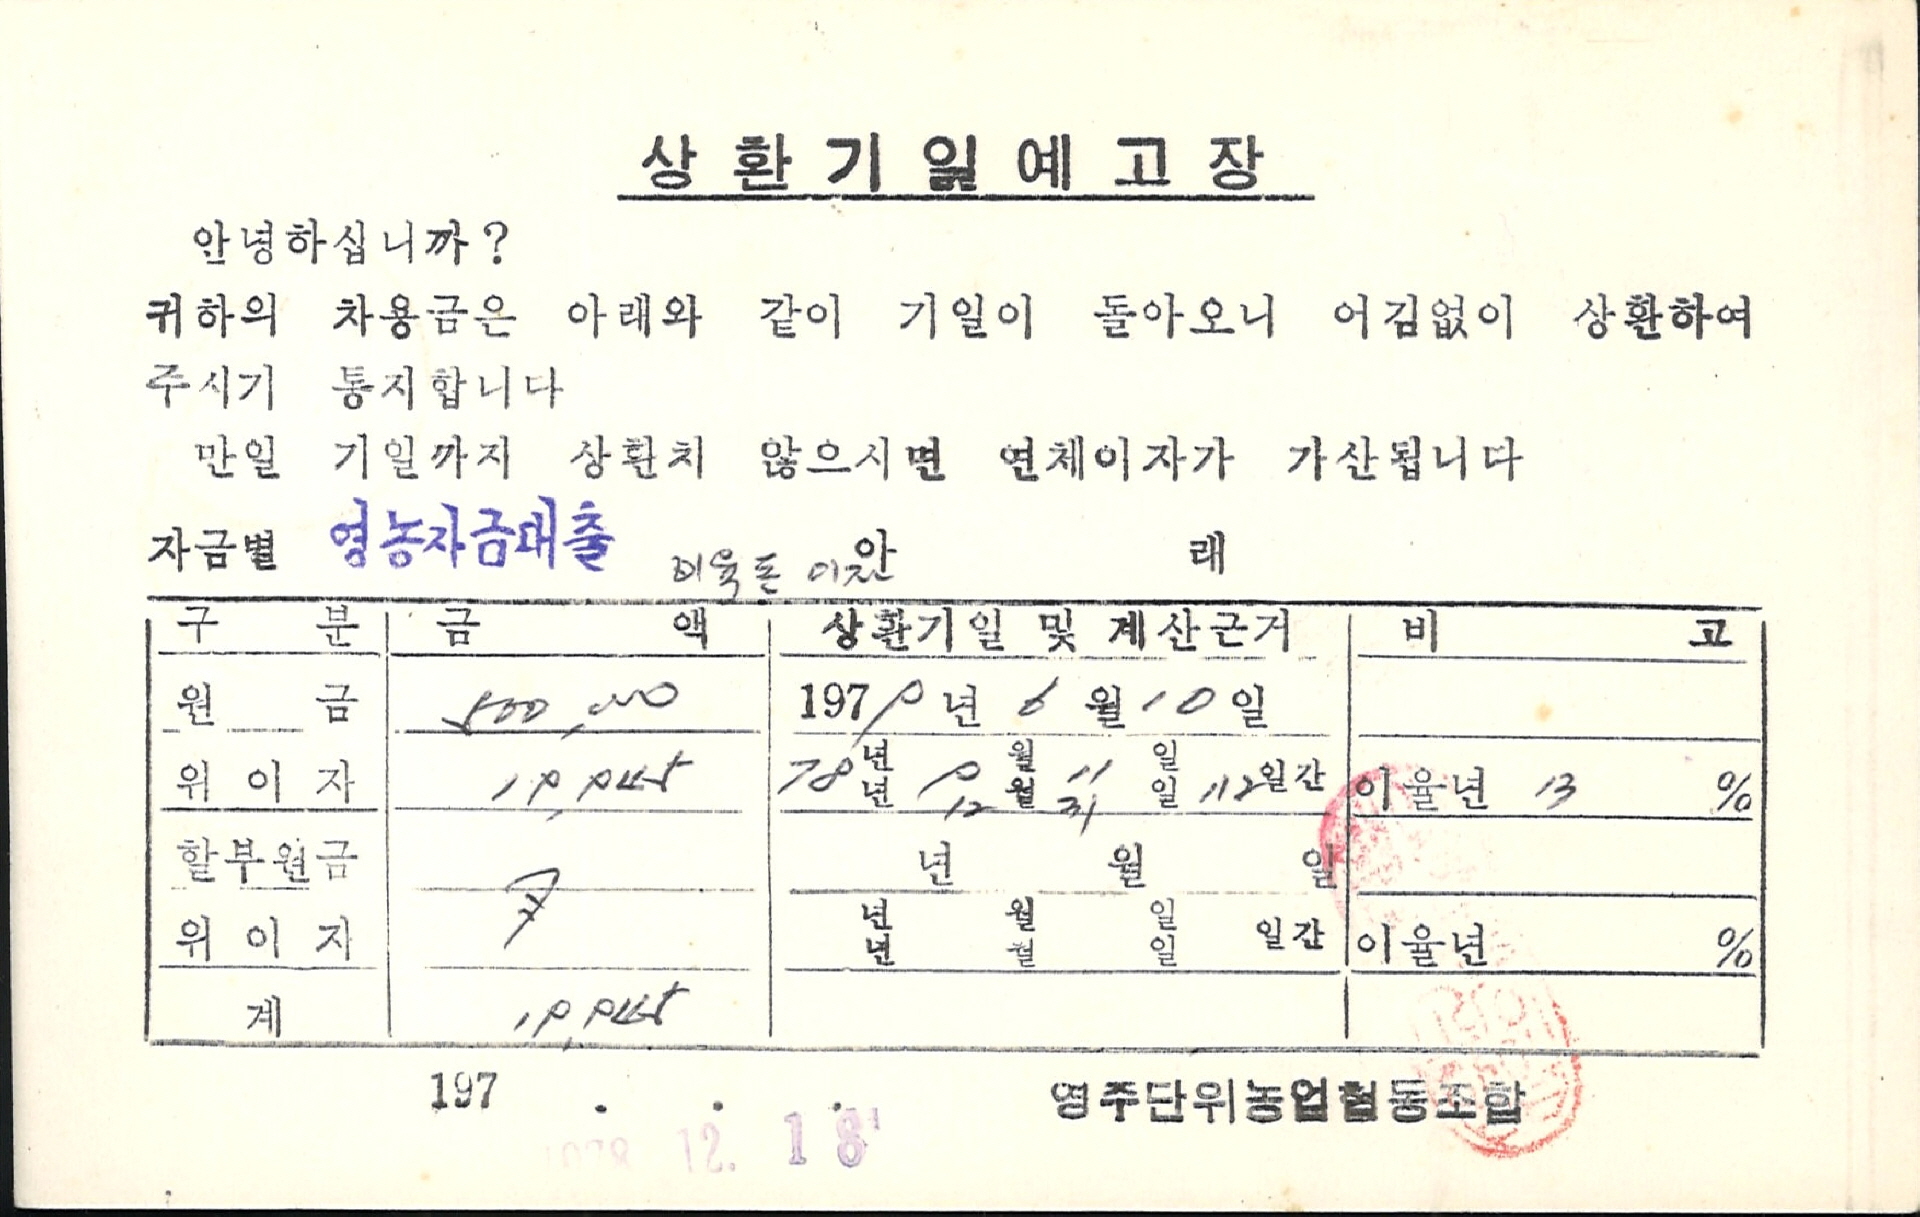 상환기일예고장
안녕하십니까?
귀하의 차용금은 아래와 같이 기일이 돌아오니 어김없이 상환하여
주시기 통지합니다
만일 기일까지 상환치 않으시면 연체이자가 가산됩니다
자금별 영농자금대출 비육돈 아 래
구 분 금 액 상환기일 및 계산근거 비 고
원 금 500,000 1979년 6월 10일
위 이 자 19,945 78년 9월 11일 년 12월 31일 112일간 이율년 13 %
할부원금 년 월 일
위 이 자 년 월 일 년 월 일 일간 이율년 %
계 19,945
197 . . . 영주단위농업협동조합
1978 12. 18